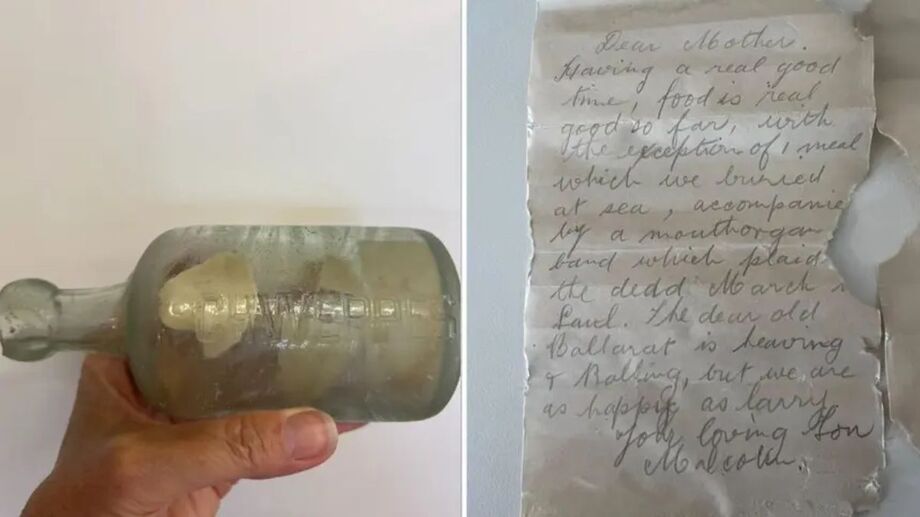 SCHWEPPES
Dear Mother.
Having a real good
time, food is real
good so far, with
the exception of 1 meal
which we buried
at sea, accompanie
by a mouthorgan
band which plaid
the dedd March i
Saul. The dear old
Ballarat is heaving
& Rolling, but we are
as happy as larry
Your loving Son
Malcolm.